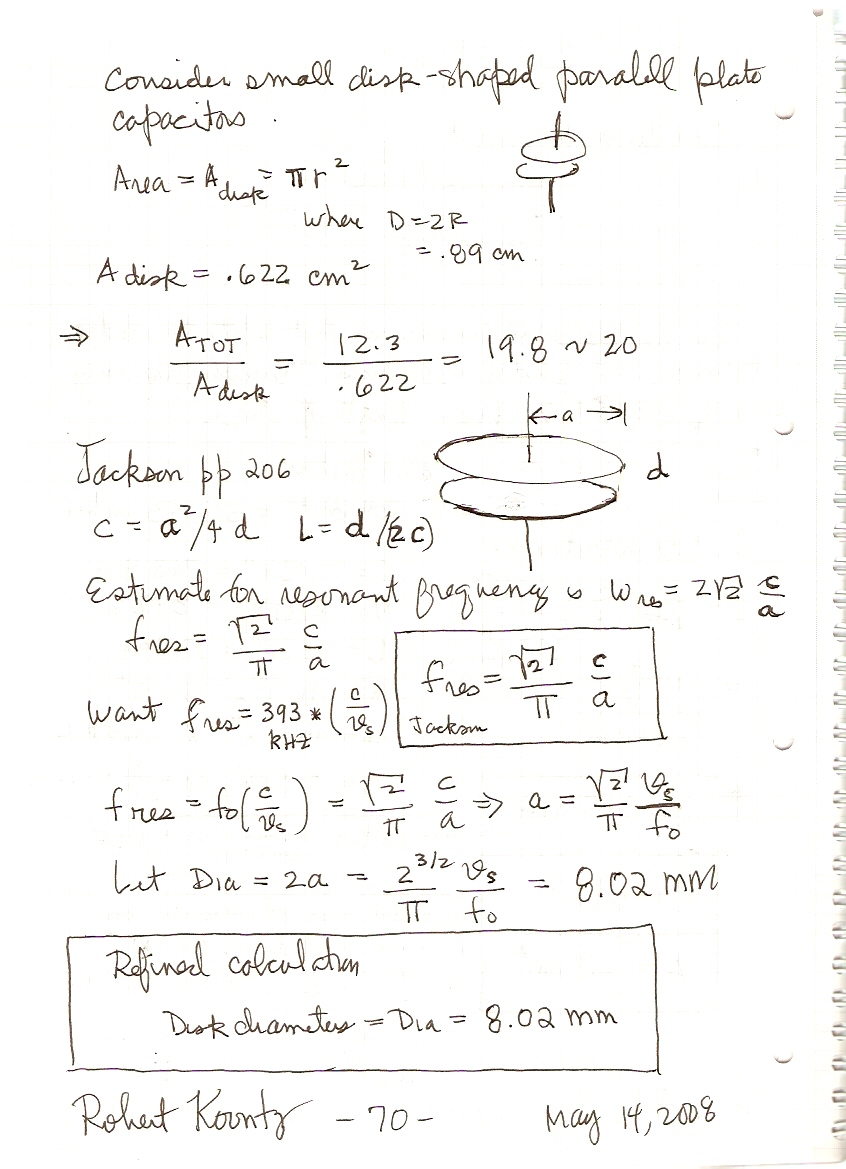 Consider small disk-shaped parallel plate
capacitors.
Area = A disk = πr²
where D = 2R
= .89 cm
A disk = .622 cm²
⇒ A TOT / A disk = 12.3 / .622 = 19.8 ~ 20
← a →
d
Jackson pp 206
C = a²/4d L = d/(2c)
Estimate for resonant frequency is ω res = 2√2 c/a
f res = √2/π c/a
f res = √2/π c/a
Jackson
Want f res = 393 * (c/v_s)
kHz
f res = fo(c/v_s) = √2/π c/a ⇒ a = √2/π v_s/f_o
Let Dia = 2a = 2^3/2/π v_s/f_o = 8.02 mm
Refined calculation
Disk diameters = Dia = 8.02 mm
Robert Koontz - 70 - May 14, 2008